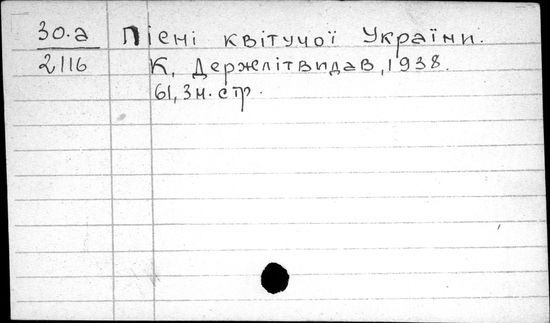 30.а Пісні квітучої України.
2116 К, Держлітвидав, 1938.
61, 3 н. стр.